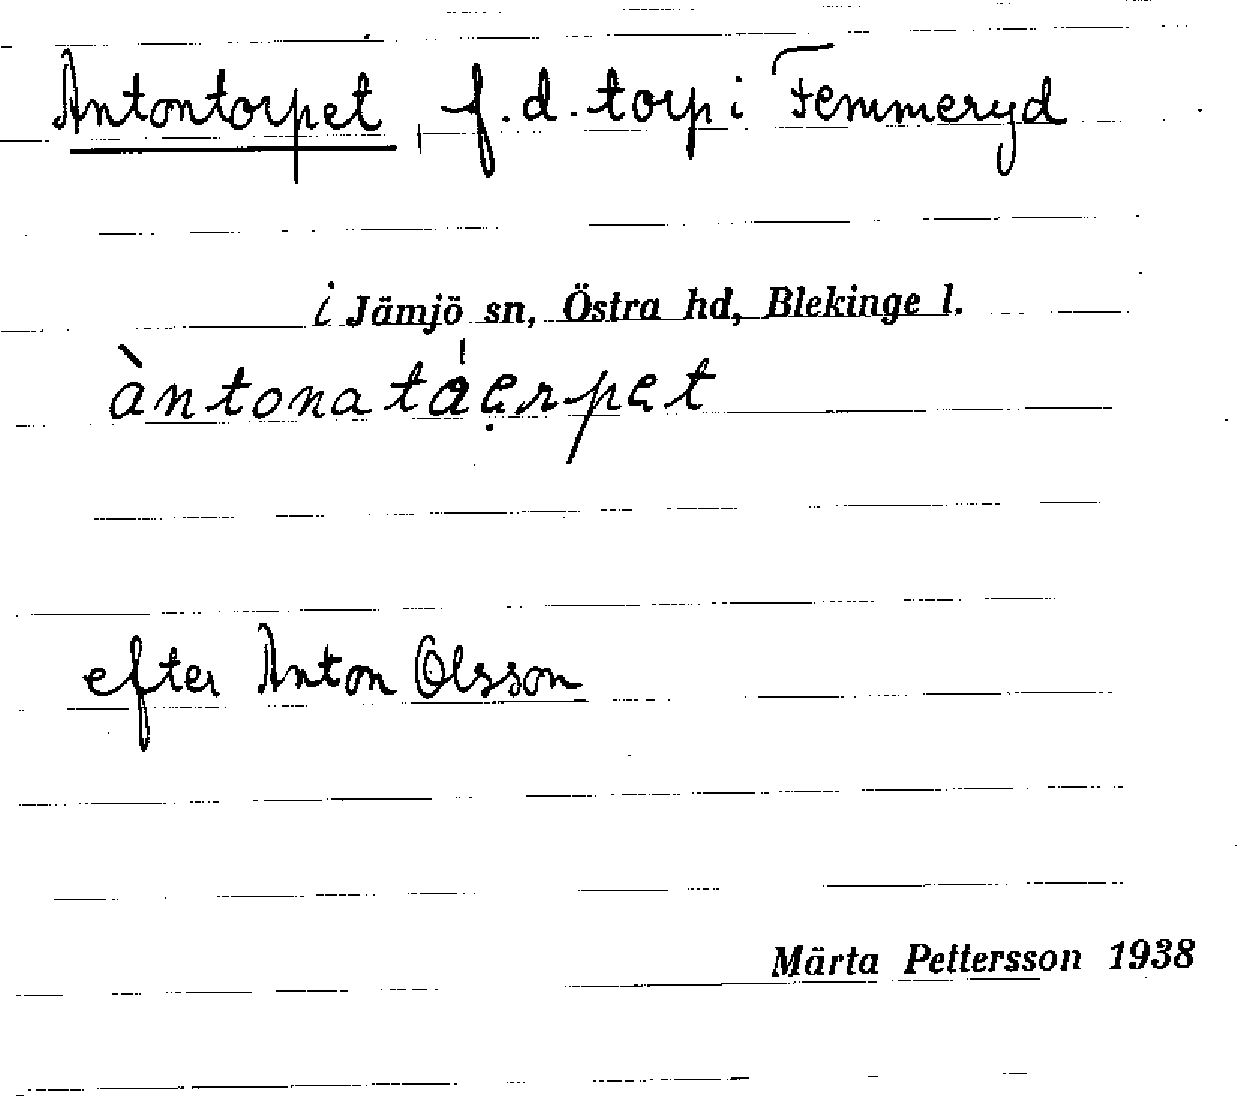 Antontorpet, f.d. torp i Femmeryd
i Jämjö sn, Östra hd, Blekinge l.
àntonatáẹrpet
efter Anton Olsson
Märta Pettersson 1938